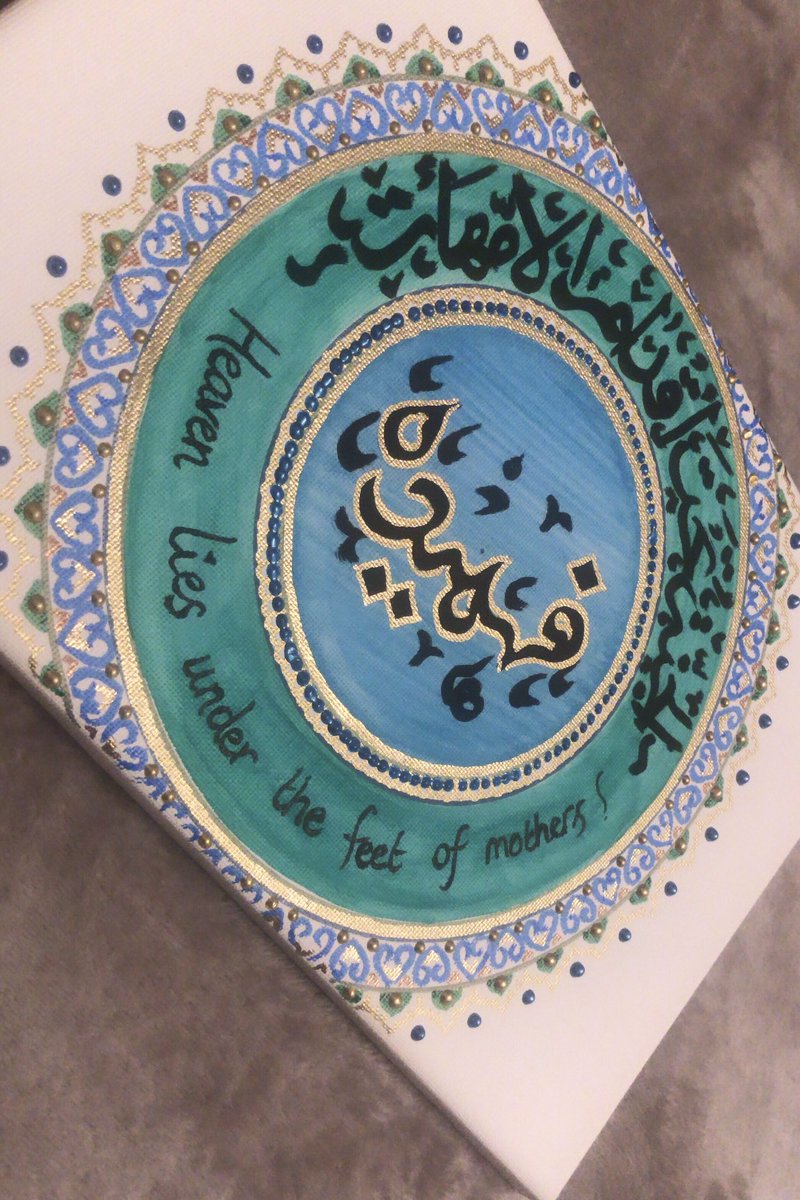 الجنة تحت أقدام الأمهات
Heaven lies under the feet of mothers!